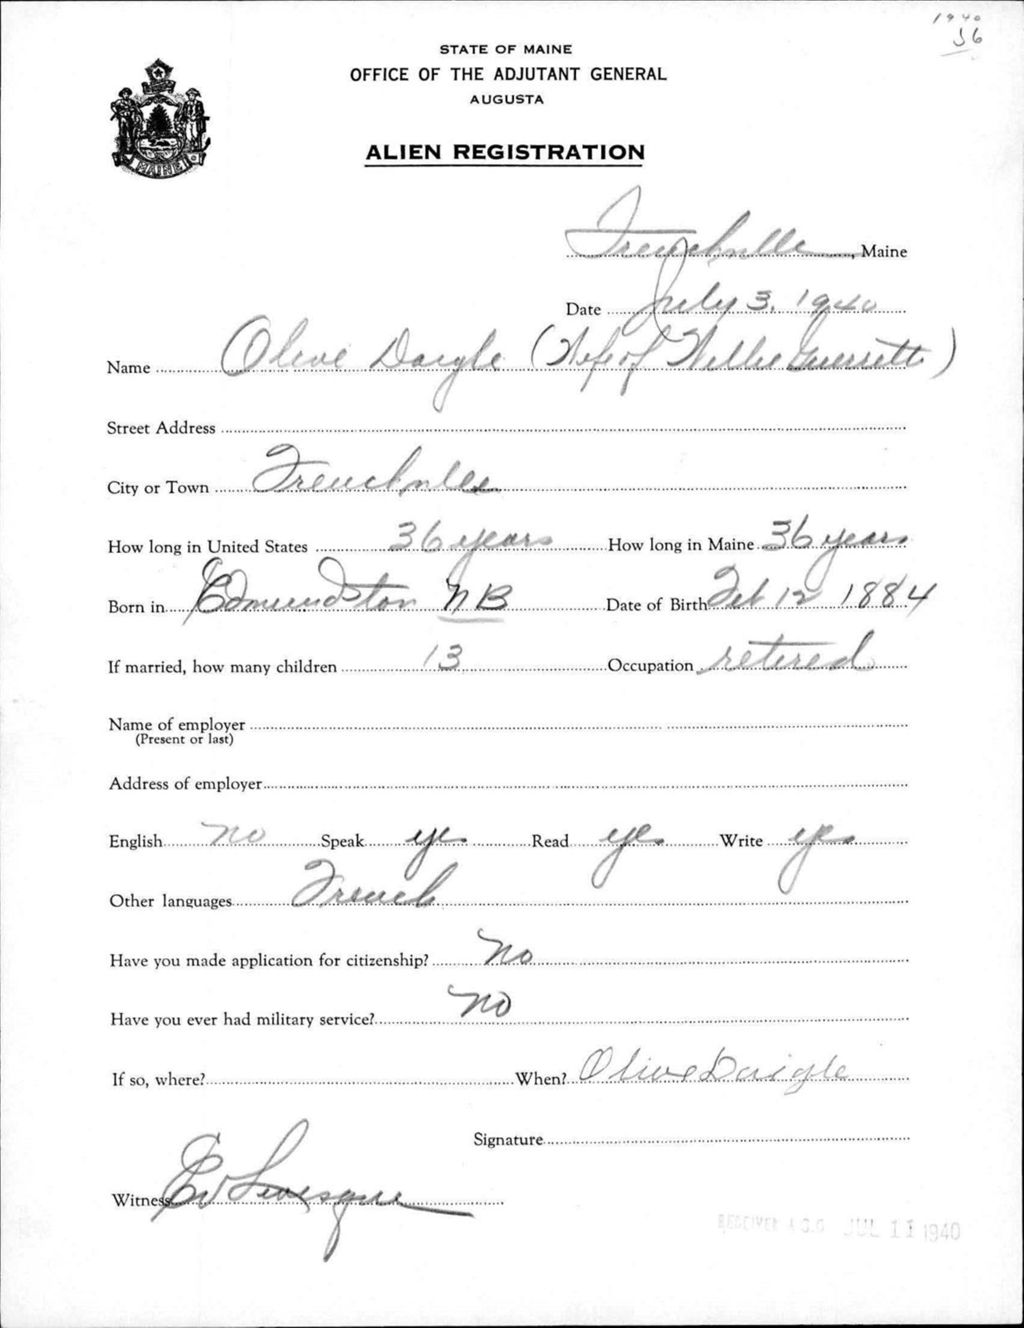 1940
36
STATE OF MAINE
OFFICE OF THE ADJUTANT GENERAL
AUGUSTA
ALIEN REGISTRATION
MAINE
Frenchville, Maine
Date July 3, 1940
Name Olive Daigle (Wife of Willie Guerrette)
Street Address
City or Town Frenchville
How long in United States 36 years How long in Maine 36 years
Born in Edmundston NB Date of Birth Feb 12 1884
If married, how many children 13 Occupation retired
Name of employer
(Present or last)
Address of employer
English no Speak yes Read yes Write yes
Other languages French
Have you made application for citizenship? No
Have you ever had military service? No
If so, where? When? Olive Daigle
Signature
Witness Ed Levesque
RECEIVED A.G.O. JUL 11 1940